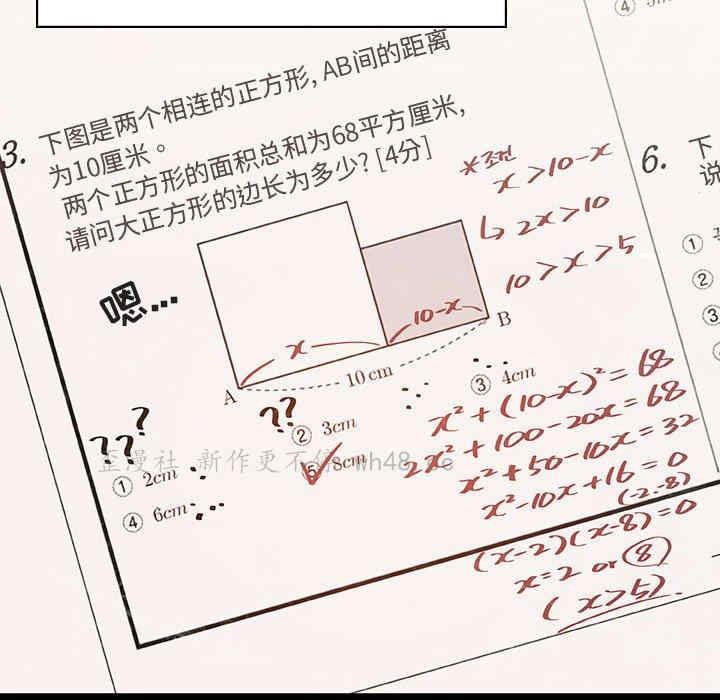 ④
3. 下图是两个相连的正方形, AB间的距离
为10厘米。
两个正方形的面积总和为68平方厘米,
请问大正方形的边长为多少? [4分]
※조건
x > 10-x
↳ 2x > 10
10 > x > 5
嗯…
x
10-x
A
B
10 cm
??
? ??
① 2cm
② 3cm
③ 4cm
④ 6cm
⑤ 8cm
歪漫社 新作更不停
x²+(10-x)²=68
2x²+100-20x=68
x²+50-10x=32
x²-10x+16=0
(-2.-8)
(x-2)(x-8)=0
x=2 or 8
(x>5).
6. 下
说
①
②
③